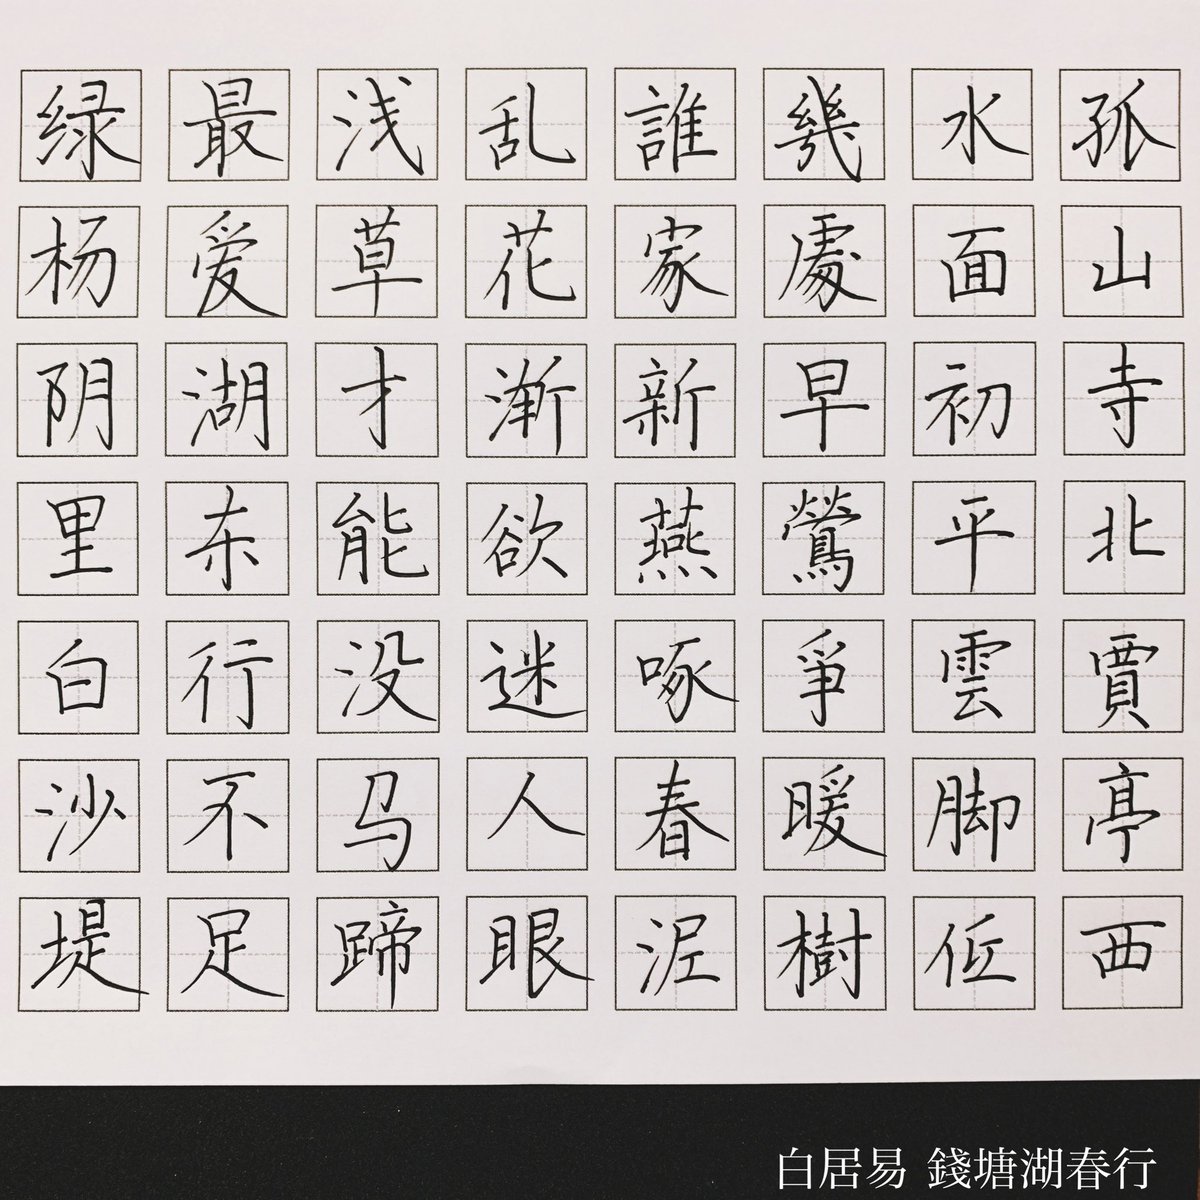 孤山寺北賈亭西
水面初平雲脚低
幾處早鶯爭暖樹
誰家新燕啄春泥
乱花渐欲迷人眼
浅草才能没马蹄
最爱湖东行不足
绿杨阴里白沙堤
白居易 錢塘湖春行